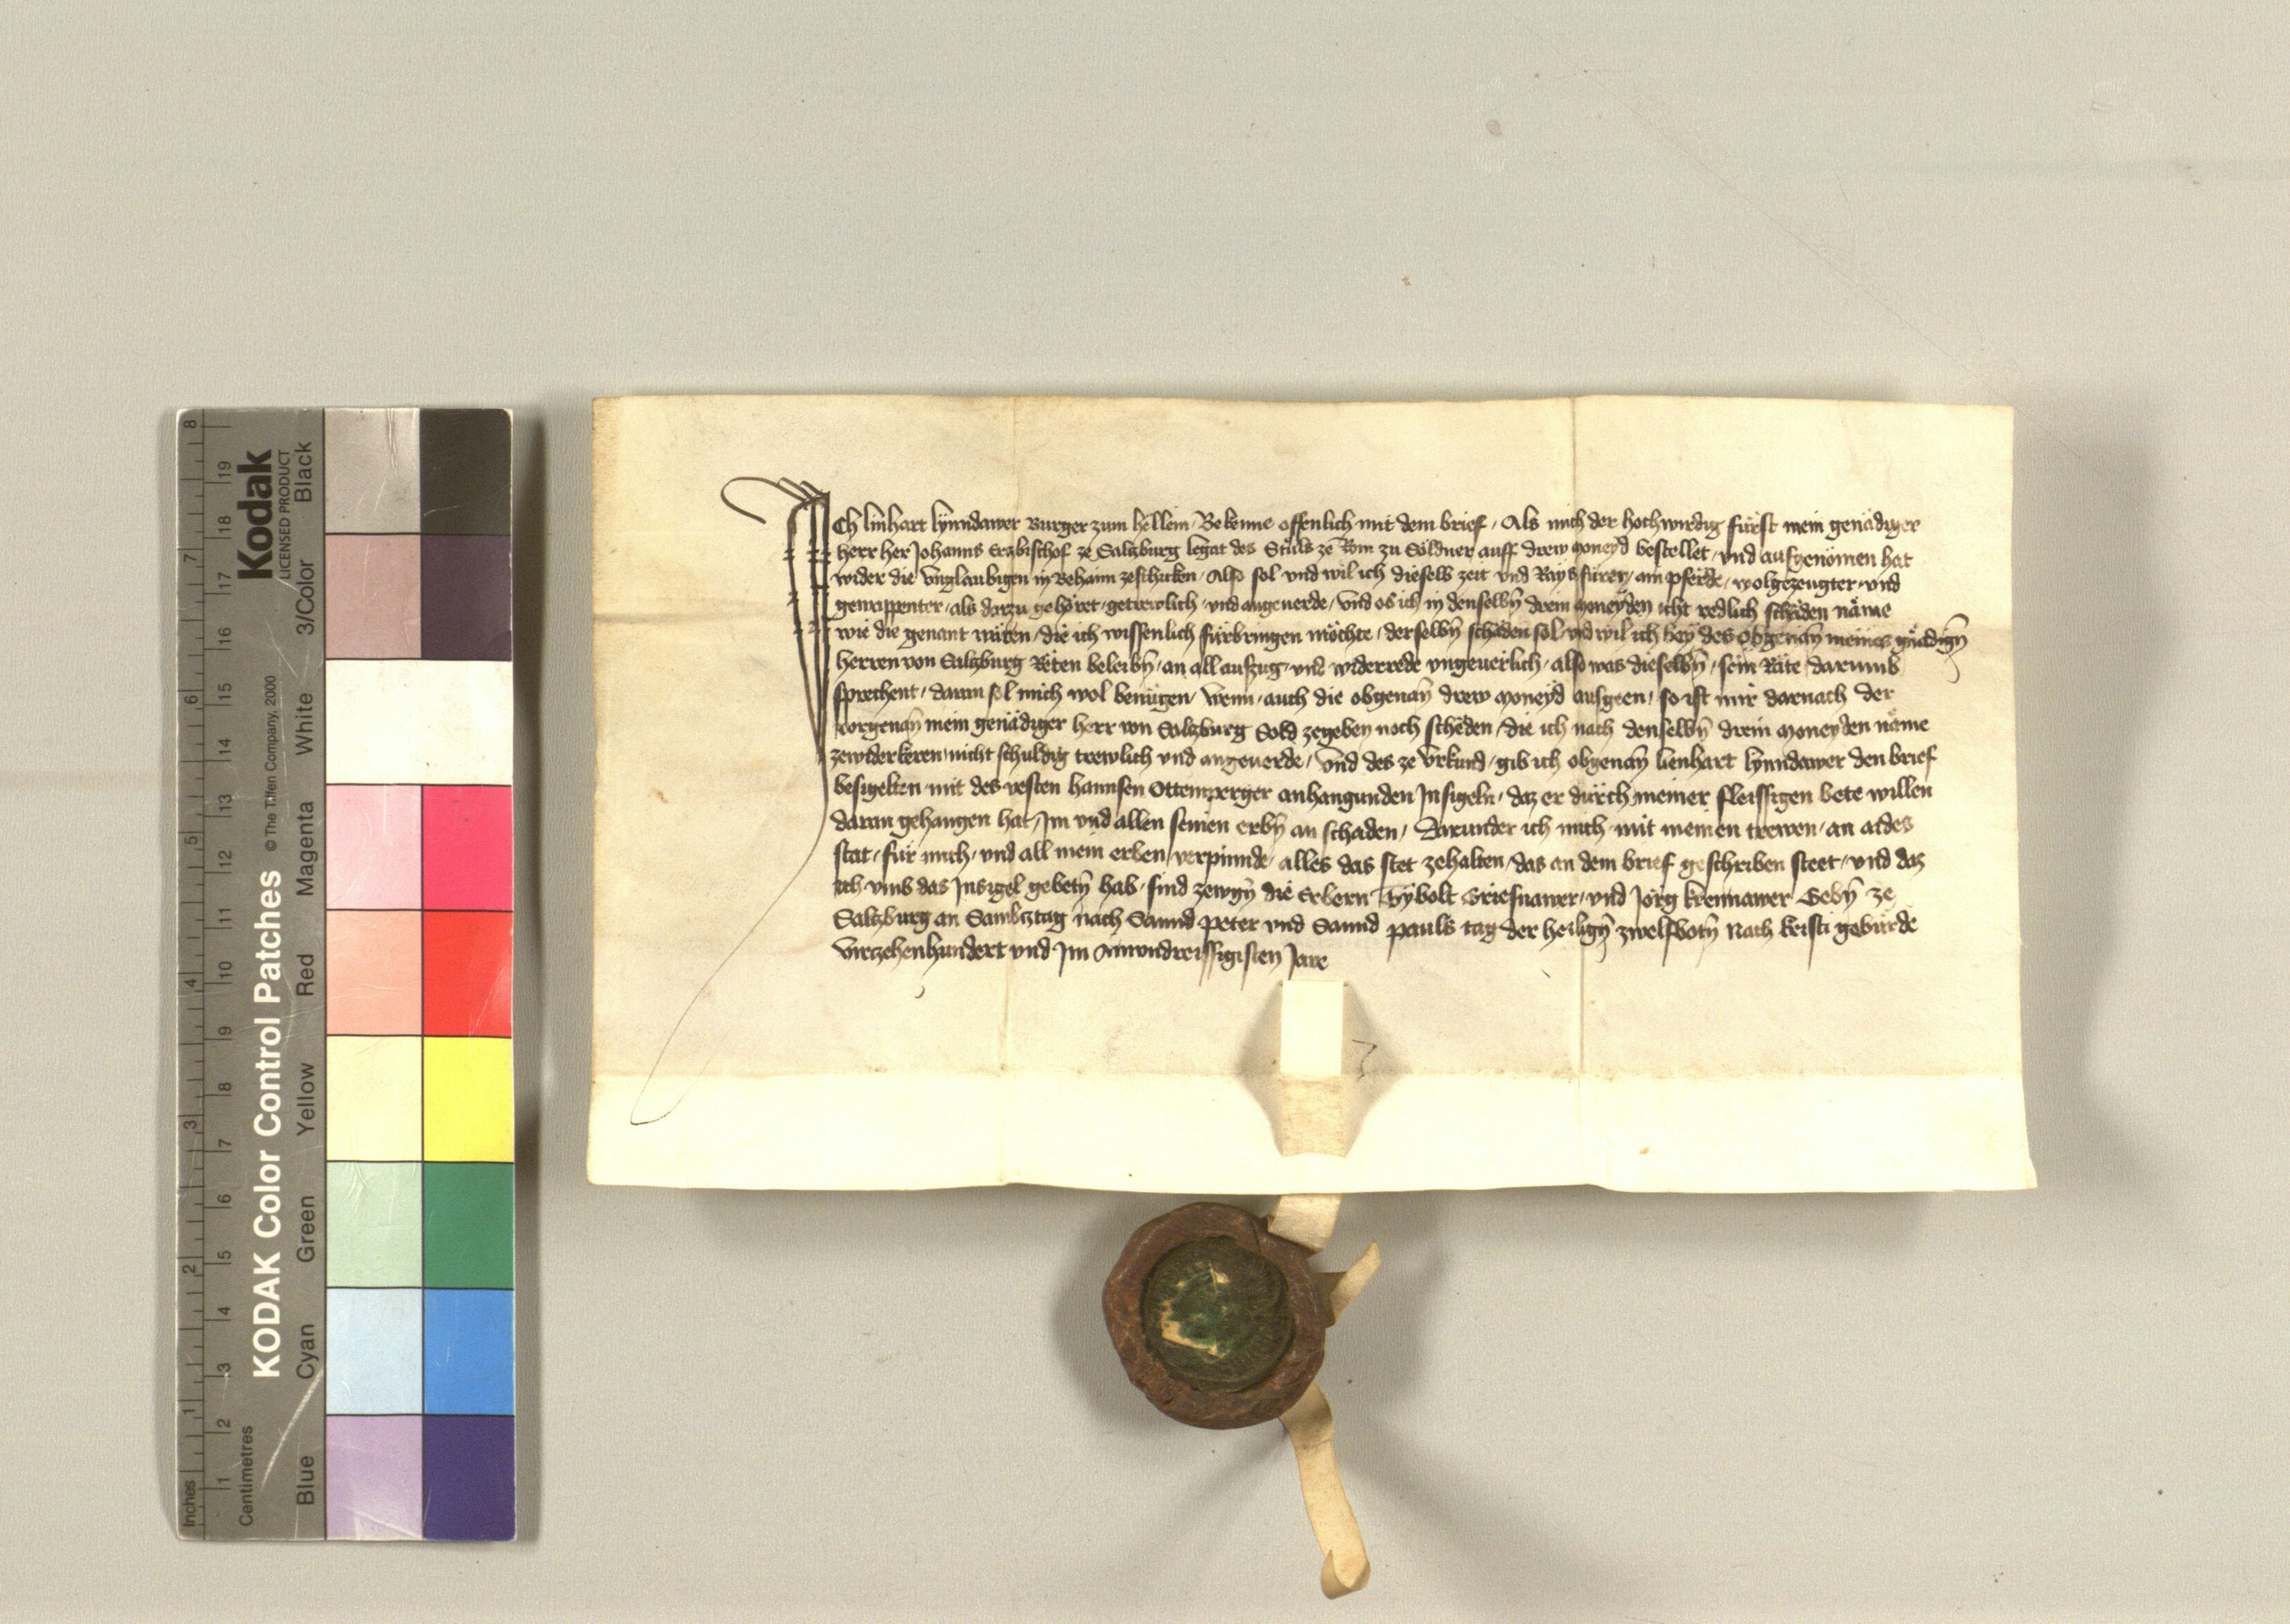 Ich linhart lynndawer Burger zum hellein Bekenne offenlich mit dem brief, Als mich der hochwirdig fürst mein genädiger
herr her Johanns Erzbischof ze Salzburg legat des Stuls ze Rom zu Söldner auff drew moneyd bestellet, vnd aufgenömen hat
wider die Vnglaubigen in Behaim zeschicken, Also sol vnd wil ich dieselb zeit vnd Rays füren, ain pferde, wolgezeugter vnd
gewappenter, als darzu gehöret, getrewlich vnd angeuerde, Vnd ob ich in denselbn drein moneyden icht redlich schëden näme
wie die genant wären, die ich wissenlich fürbringen möchte, derselbn schëden sol vnd wil ich bey des obgenan meines gnädign
herren von Salzburg Rëten beleibn, an all aufzug, vnd widerrede vngeuerlich, also was dieselbn, sein Räte, darumb
sprechent, daran sol mich wol benügen, Wenn, auch die obgenan drew moneyd ausgeen, so ist mir darnach der
vorgenan mein genädiger herr von Salzburg Sold zegeben noch schëden, die ich nach denselbn drein moneyden näme
zewiderkeren nicht schuldig trewlich vnd angeuerde, Vnd des ze Vrkund, gib ich obgenan lienhart lynndawer den brief
besigelten mit des vesten hannsen Ottemperger anhangunden Insigeln, daz er dürch meiner fleissigen bete willen
daran gehangen hat, Im vnd allen seinen erbn an schaden, Darunder ich mich mit meinen trewen, an aides
stat, für mich, vnd all mein erben, verpinnde, alles das stet zehalten, das an dem brief geschriben steet, vnd daz
ich vmb das Insigel gebetn hab, sind zewgn die Erbern Sybolt Griesnawer, vnd Jörg krennawer Gebn ze
Salzburg an Sambztag nach Sannd Peter vnd Sannd pauls tag der heilign zwelfbotn Nach kristi gebürde
Vierzehenhundert vnd Im Ainvndreissigisten Jare
Kodak
LICENSED PRODUCT
KODAK Color Control Patches
© The Tiffen Company, 2000
Black
3/Color
White
Magenta
Red
Yellow
Green
Cyan
Blue
Inches 1 2 3 4 5 6 7 8
Centimetres 1 2 3 4 5 6 7 8 9 10 11 12 13 14 15 16 17 18 19